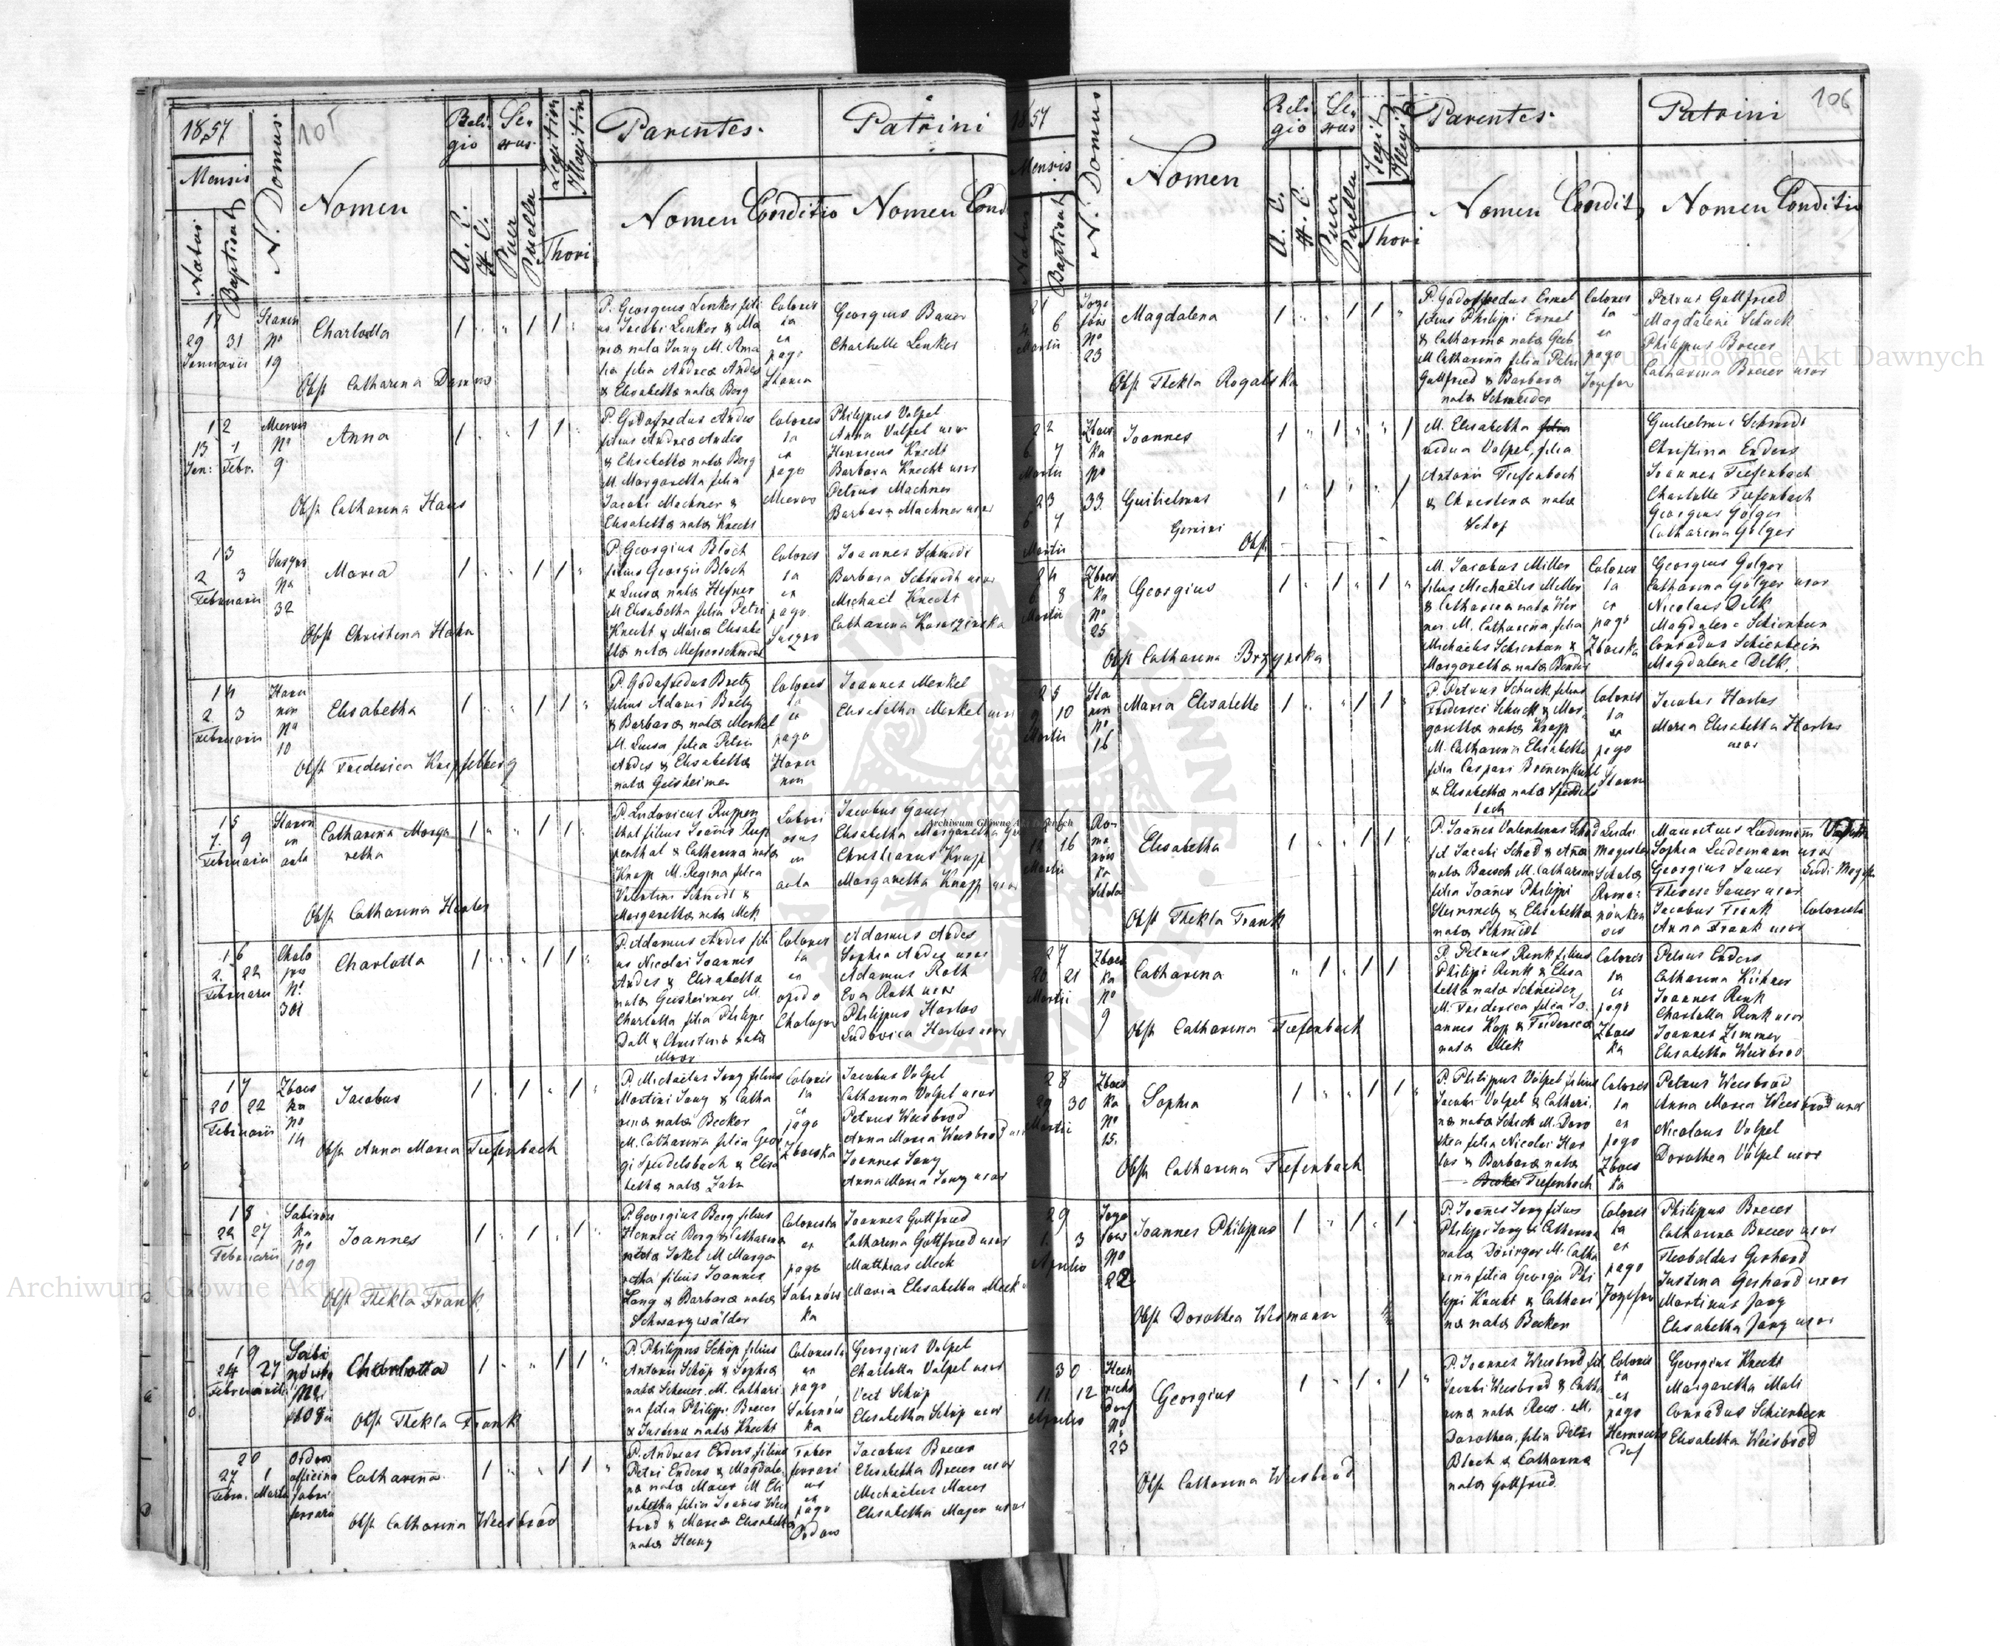 1857
105
Mensis
Natus
Baptisat
N. Domus
Nomen
Reli
gio
A. C.
H. C.
Se-
xus
Puer
Puella
Legitim
Illegitim
Thori
Parentes.
Nomen
Conditio
Patrini
Nomen
Cond
11
29 31
Januarii
No
19
Charlotta
Obst Catharina
P. Georgius Lenker fili
us Jacobi Lenker & Ma
ria nata Jung M. Ama
lia filia Andreae Andes
& Elisabetha nata Berg
Colonis
ta
ex
pago
Georgius Bauer
Charlotte Lenker
12
13 1
Jan: Febr.
No
9
Anna
Obst Catharina Haas
P. Godofredus Andes
filius Andreae Andes
& Elisabetha nata Berg
M. Margaretha filia
Jacobi Machmer &
Elisabetha nata Knecht
Colonis
ta
ex
pago
Mierow
Philippus Volpel
Anna Volpel uxor
Henricus Knecht
Barbara Knecht uxor
Petrus Machmer
Barbara Machmer uxor
13
2 3
Februarii
No
32
Maria
Obst Christina Hahn
P. Georgius Bloch
filius Georgii Bloch
& Luisa nata Hefner
M. Elisabetha filia Petri
Knecht & Maria Elisabe
tha nata Messerschmidt
Colonis
ta
ex
pago
Joannes Schmidt
Barbara Schmidt uxor
Michael Knecht
Catharina
14
2 3
Februarii
Hanu
nin
No
10
Elisabetha
Obst Frederica
P. Godofredus Bretz
filius Adami Bretz
& Barbara nata Merkel
M. Luisa filia Petri
Andes & Elisabetha
nata Geisheimer
Colonis
ta
ex
pago
Joannes Merkel
Elisabetha Merkel uxor
15
7. 9
Februarii
in
aula
Catharina Marga
retha
Obst Catharina
P. Ludovicus Ruppen
thal filius Joannis Rup
penthal & Catharina nata
Knapp M. Regina filia
Valentini Schmidt &
Margaretha nata Mek
aula
Jacobus Gauer
Elisabetha Margaretha
Christianus Knapp
Margaretha Knapp uxor
16
2. 22
Februarii
No
301
Charlotta
P. Adamus Andes fili
us Nicolai Joannis
Andes & Elisabetha
nata Geisheimer M.
Charlotta filia Philippi
Dall & Christina nata
Colonis
ta
ex
Adamus Andes
Sophia Andes uxor
Adamus Roth
Eva Roth uxor
Philippus Harlos
Ludovica Harlos uxor
17
20 22
Februarii
Zbois
ka
No
14
Jacobus
Obst Anna Maria Tiefenbach
P. Michaelus Jung filius
Martini Jung & Catha
rina nata Becker
M. Catharina filia Geor
gi Speidelsbach & Elisa
betha nata Zahn
Colonis
ta
ex
pago
Zboiska
Jacobus Volpel
Catharina Volpel uxor
Petrus Weisbrod
Anna Maria Weisbrod uxor
Joannes Jung
Anna Maria Jung uxor
18
22 27
Februarii
Sabinow
ka
No
109
Joannes
Obst Thekla Frank
P. Georgius Berg filius
Henrici Berg & Catharina
nata Jakel M. Marga
retha filius Joannes
Lang & Barbara nata
Schwarzwälder
Colonista
ex
pago
Sabinów
ka
Joannes Gottfried
Catharina Gottfried uxor
Matthias Meck
Maria Elisabetha Meck
19
24 27
Februarii
Charlotta
Obst Thekla Frank
P. Philippus Schöp filius
Antonii Schöp & Sophia
nata Scheuer. M. Cathari
na filia Philippi Breier
& Justina nata Knecht
Colonista
ex
pago
Sabinów
ka
Georgius Volpel
Charlotta Volpel uxor
Veit Schöp
Elisabetha Schöp uxor
20
27 1
Febru. Martii
Ordow
officina
fabri
ferrarii
Catharina
Obst Catharina Weisbrod
P. Andreas Enders filius
Petri Enders & Magdale
na nata Maier M. Eli
sabetha filia Joannis Weis
brod & Maria Elisabetha
nata
Faber
ferrari
us
ex
pago
Ordow
Jacobus Breier
Elisabetha Breier uxor
Michaelus Maier
Elisabetha Majer uxor
1857
106
Mensis
Natus
Baptisat
N. Domus
Nomen
Reli
gio
A. C.
H. C.
Se-
xus
Puer
Puella
Legit
Illegit
Thori
Parentes.
Nomen
Condit
Patrini
Nomen
Conditio
21
4 6
Martii
No
23
Magdalena
Obst Thekla Rogalska
P. Godofredus Ermel
filius Philippi Ermel
& Catharina nata Geib
M Catharina filia Petri
Gottfried & Barbara
nata Schneider
Colonis
ta
ex
pago
Jozefow
Petrus Gottfried
Magdalene Schuck
Philippus Breier
Catharina Breier uxor
22
6 7
Martii
Zbois
ka
No
33.
Joannes
23
6 7
Martii
Guilielmus
Gemini
Obst
M. Elisabetha
vidua Volpel, filia
Antonii Tiefenbach
& Christina nata
Schof
Guilielmus Schmidt
Christina Enders
Joannes Tiefenbach
Charlotte Tiefenbach
Georgius Golger
Catharina Golger
24
6 8
Martii
Zbois
ka
No
25
Georgius
Obst Catharina Brzynska
M. Jacobus Miller
filius Michaelis Miller
& Catharina nata Wer
ner M. Catharina filia
Michaelis Schienbein &
Margaretha nata Bender
Colonis
ta
ex
pago
Zboiska
Georgius Golger
Catharina Golger uxor
Nicolaus Dilk
Magdalene Schienbein
Conradus Schienbein
Magdalene Dilk.
25
9 10
Martii
No
16
Maria Elisabetha
P. Petrus Schuck filius
Friderici Schuck & Mar-
garetha nata Knapp
M. Catharina Elisabetha
filia Caspari
& Elisabetha nata
bach
Colonis
ta
ex
pago
Jacobus Harlos
Maria Elisabetha Harlos
uxor
26
12 16
Martii
Ro
ma
nów
ka
Schola
Elisabetha
Obst Thekla Frank
P. Joannes Valentinus Schad
fil Jacobi Schad & Anna
nata Baisch M. Catharina
filia Joannis Philippi
Steinmetz & Elisabetha
nata Schmidt
Ludi
Magister
Schola
Roma-
nówken
sis
Mauritius Ludemann
Sophia Ludemann uxor
Georgius Sauer
Therese Sauer uxor
Jacobus Frank
Anna Frank uxor
Ludi Magist
Colonista
27
20 21
Martii
Zbois
ka
No
9
Catharina
Obst Catharina Tiefenbach
P. Petrus Renk filius
Philippi Renk & Elisa
betha nata Schneider
M. Friderica filia Jo.
annis Kop & Friderica
nata Mek
Colonis
ta
ex
pago
Zbois
ka
Petrus Enders
Catharina Kühner
Joannes Renk
Charlotta Renk uxor
Joannes Zimmer
Elisabetha Weisbrod
28
29 30
Martii
Zbois
ka
No
15.
Sophia
Obst Catharina Tiefenbach
P. Philippus Völpel filius
Jacobi Volpel & Cathari.
na nata Schick M. Doro
thea filia Nicolai Har
los & Barbara nata
Tiefenbach
Colonis
ta
ex
pago
Zbois
ka
Petrus Weisbrod
Anna Maria Weisbrod uxor
Nicolaus Volpel
Dorothea Völpel uxor
29
1. 3
Aprilis
Joze
fow
No
22
Joannes Philippus
Obst Dorothea Wismann
P. Joannes Jung filius
Philippi Jung & Catharina
nata Dösinger M. Catha
rina filia Georgii Phi
lippi Knecht & Cathari
na nata Becker
Colonis
ta
ex
pago
Jozefow
Philippus Breier
Catharina Breier uxor
Theobaldus Gerhard
Justina Gerhard uxor
Martinus Jung
Elisabetha Jung uxor
30
11. 12
Aprilis
Hein
richs
dorf
No
23
Georgius
Obst Catharina Weisbrod
P. Joannes Weisbrod fil.
Jacobi Weisbrod & Catha
rina nata Reis. M.
Dorothea, filia Petri
Bloch & Catharina
nata Gottfried.
Colonis
ta
ex
pago
Heinrichs
dorf
Georgius Knecht
Margaretha Mali
Conradus Schienbein
Elisabetha Weisbrod
Archiwum Główne Akt Dawnych
Archiwum Główne Akt Dawnych
Archiwum Główne Akt Dawnych
ARCHIWUM GŁÓWNE